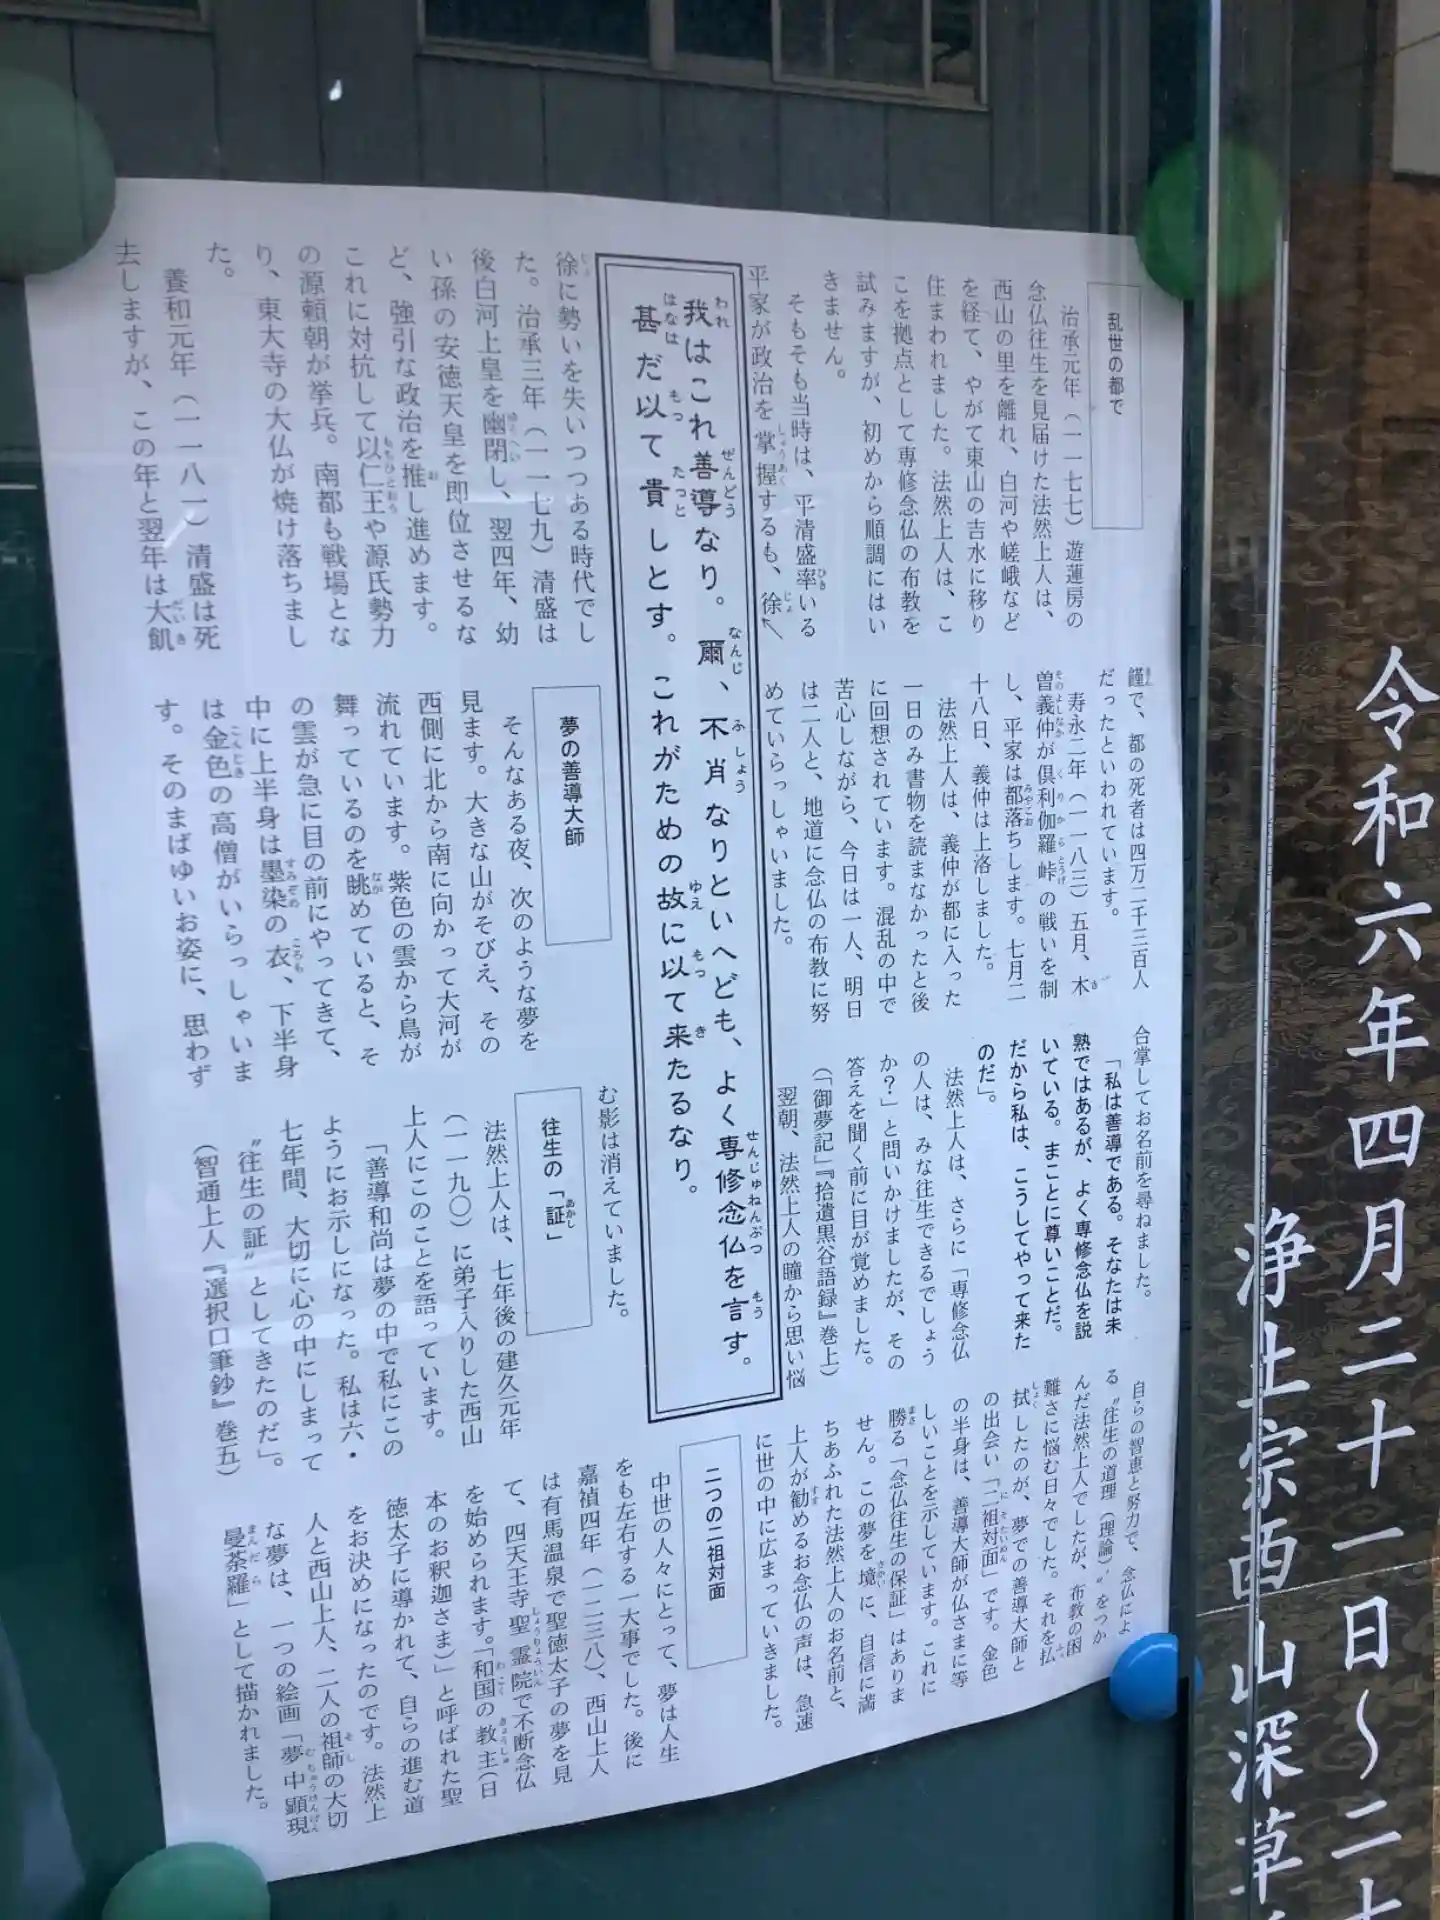 乱世の都で
治承元年（一一七七）遊蓮房の
念仏往生を見届けた法然上人は、
西山の里を離れ、白河や嵯峨など
を経て、やがて東山の吉水に移り
住まわれました。法然上人は、こ
こを拠点として専修念仏の布教を
試みますが、初めから順調にはい
きません。
そもそも当時は、平清盛率いる
平家が政治を掌握するも、徐
我はこれ善導なり。爾、不肖なりといへども、よく専修念仏を言す。
甚だ以て貴しとす。これがための故に以て来たるなり。
徐に勢いを失いつつある時代でし
た。治承三年（一一七九）清盛は
後白河上皇を幽閉し、翌四年、幼
い孫の安徳天皇を即位させるな
ど、強引な政治を推し進めます。
これに対抗して以仁王や源氏勢力
の源頼朝が挙兵。南都も戦場とな
り、東大寺の大仏が焼け落ちまし
た。
養和元年（一一八一）清盛は死
去しますが、この年と翌年は大飢
饉で、都の死者は四万二千三百人
だったといわれています。
寿永二年（一一八三）五月、木
曽義仲が倶利伽羅峠の戦いを制
し、平家は都落ちします。七月二
十八日、義仲は上洛しました。
法然上人は、義仲が都に入った
一日のみ書物を読まなかったと後
に回想されています。混乱の中で
苦心しながら、今日は一人、明日
は二人と、地道に念仏の布教に努
めていらっしゃいました。
夢の善導大師
そんなある夜、次のような夢を
見ます。大きな山がそびえ、その
西側に北から南に向かって大河が
流れています。紫色の雲から鳥が
舞っているのを眺めていると、そ
の雲が急に目の前にやってきて、
中に上半身は墨染の衣、下半身
は金色の高僧がいらっしゃいま
す。そのまばゆいお姿に、思わず
合掌してお名前を尋ねました。
「私は善導である。そなたは未
熟ではあるが、よく専修念仏を説
いている。まことに尊いことだ。
だから私は、こうしてやって来た
のだ」。
法然上人は、さらに「専修念仏
の人は、みな往生できるでしょう
か？」と問いかけましたが、その
答えを聞く前に目が覚めました。
（「御夢記」『拾遺黒谷語録』巻上）
翌朝、法然上人の瞳から思い悩
む影は消えていました。
往生の「証」
法然上人は、七年後の建久元年
（一一九〇）に弟子入りした西山
上人にこのことを語っています。
「善導和尚は夢の中で私にこの
ようにお示しになった。私は六・
七年間、大切に心の中にしまって
〝往生の証〟としてきたのだ」。
（智通上人『選択口筆鈔』巻五）
自らの智恵と努力で、念仏によ
る〝往生の道理（理論）〟をつか
んだ法然上人でしたが、布教の困
難さに悩む日々でした。それを払
拭したのが、夢での善導大師と
の出会い「二祖対面」です。金色
の半身は、善導大師が仏さまに等
しいことを示しています。これに
勝る「念仏往生の保証」はありま
せん。この夢を境に、自信に満
ちあふれた法然上人のお名前と、
上人が勧めるお念仏の声は、急速
に世の中に広まっていきました。
二つの二祖対面
中世の人々にとって、夢は人生
をも左右する一大事でした。後に
嘉禎四年（一二三八）、西山上人
は有馬温泉で聖徳太子の夢を見
て、四天王寺聖霊院で不断念仏
を始められます。「和国の教主（日
本のお釈迦さま）」と呼ばれた聖
徳太子に導かれて、自らの進む道
をお決めになったのです。法然上
人と西山上人、二人の祖師の大切
な夢は、一つの絵画「夢中顕現
曼荼羅」として描かれました。
令和六年四月二十一日～二十
浄土宗西山深草